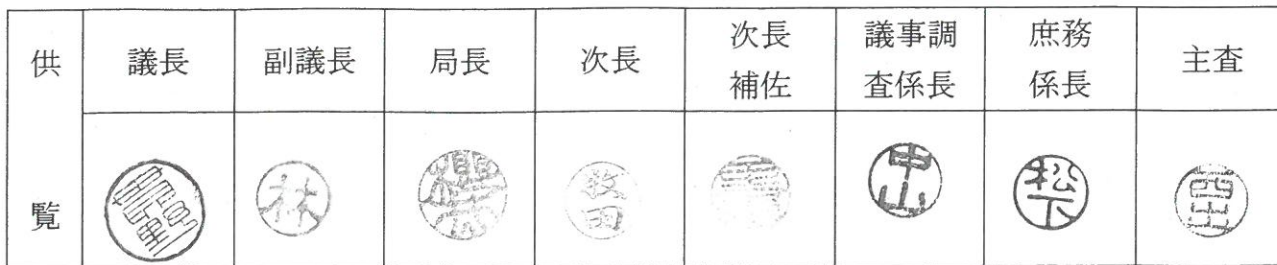 供覧
議長
副議長
局長
次長
次長補佐
議事調査係長
庶務係長
主査
林
牧田
中山
松下
西出